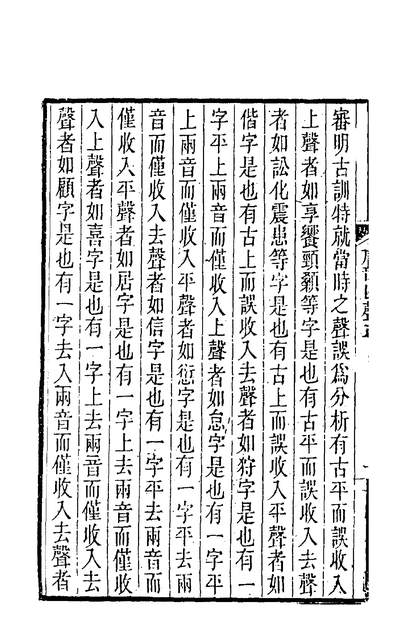 審明古訓特就當時之聲誤爲分析有古平而誤收入
上聲者如享饗頸顙等字是也有古平而誤收入去聲
者如訟化震患等字是也有古上而誤收入平聲者如
偕字是也有古上而誤收入去聲者如狩字是也有一
字平上兩音而僅收入上聲者如怠字是也有一字平
上兩音而僅收入平聲者如愆字是也有一字平去兩
音而僅收入去聲者如信字是也有一字平去兩音而
僅收入平聲者如居字是也有一字上去兩音而僅收
入上聲者如喜字是也有一字上去兩音而僅收入去
聲者如顧字是也有一字去入兩音而僅收入去聲者